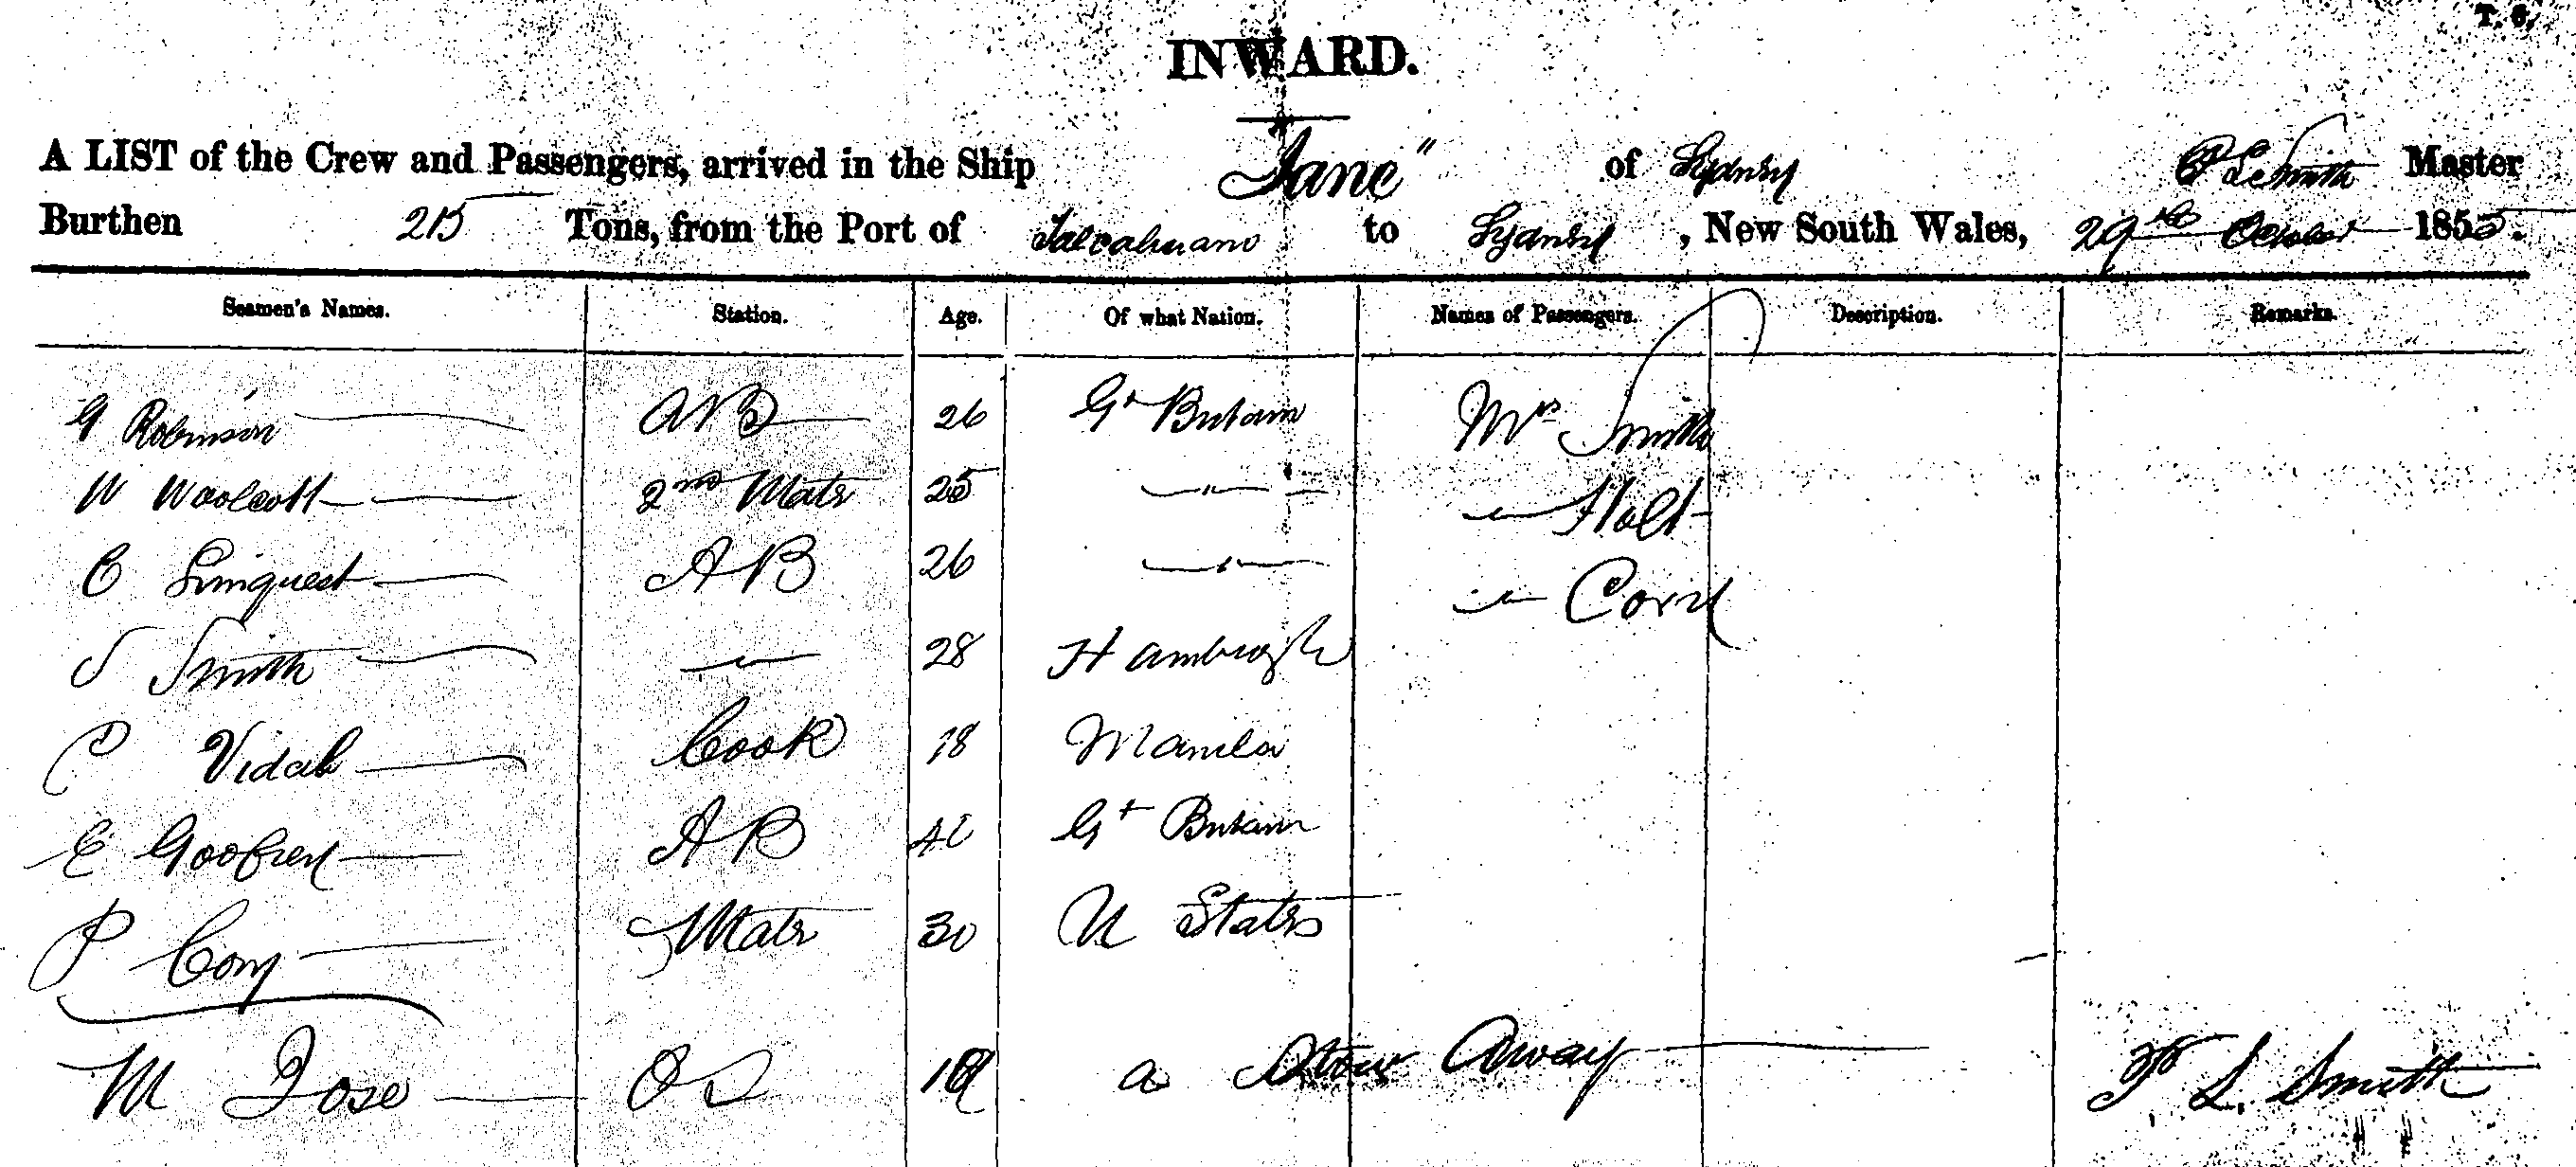 T. 6.
INWARD.
A LIST of the Crew and Passengers, arrived in the Ship "Jane" of Sydney P L Smith Master
Burthen 215 Tons, from the Port of Talcahuano to Sydney, New South Wales, 29th October 1855.
Seamen's Names. Station. Age. Of what Nation. Names of Passengers. Description. Remarks.
G Robinson AB 26 Gt Britain Mrs Smith
W Woolcott 2nd Mate 25 " " Holt
C Linquest AB 26 " "
J Smith " 28 Hambrogh
P Vidal Cook 18 Manila
E Goofrey AB Gt Britain
P Cory Mate 30 U States
M Jose OS a Stow Away L. Smith